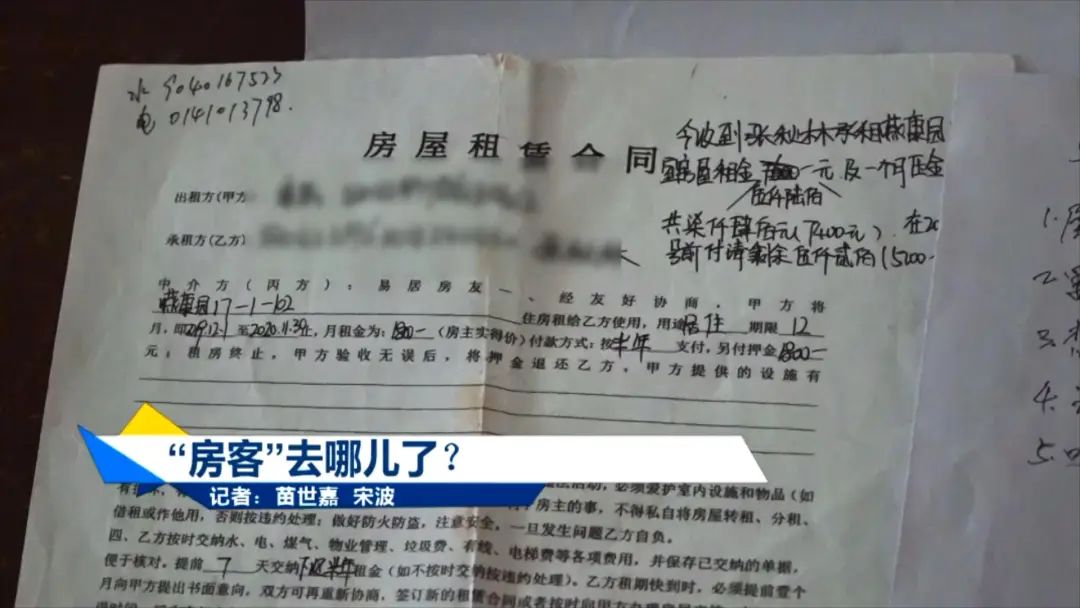 水 9040167523
电 0141013798.
房屋租赁合同
今收到张秋林承租燕康园
房屋租金 一元及一个月压金
伍仟陆佰
共柒仟肆佰元(7400元). 在20
号前付清剩余伍仟贰佰(5200-
出租方(甲方
承租方(乙方)
中介方(丙方):易居房友一、经友好协商,甲方将
燕康园17-1-102 住房租给乙方使用,用途居住 期限 12
月,即2019.12.1至2020.11.30止,月租金为:1800-(房主实得价)付款方式:按半年支付,另付押金1800-
元;租房终止,甲方验收无误后,将押金退还乙方。甲方提供的设施有
“房客”去哪儿了?
记者:苗世嘉 宋波
法活动,必须爱护室内设施和物品(如
房主的事,不得私自将房屋转租、分租、
借租或作他用,否则按违约处理;做好防火防盗,注意安全。一旦发生问题乙方自负。
四、乙方按时交纳水、电、煤气、物业管理、垃圾费、有线、电梯费等各项费用,并保存已交纳的单据,
便于核对。提前 7 天交纳下次半年租金(如不按时交纳按违约处理)。乙方租期快到时,必须提前壹个
月向甲方提出书面意向,双方可再重新协商,签订新的租赁合同或者按时向甲方办理房屋
1.
2.
3.
4.
5.